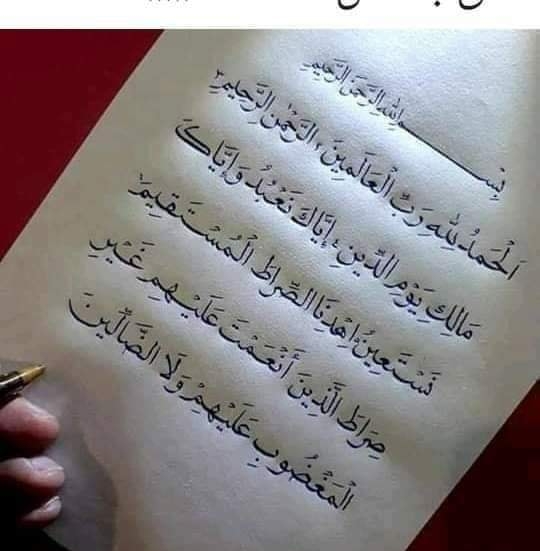 بِسْمِ اللهِ الرَّحْمٰنِ الرَّحِيْمِ
اَلْحَمْدُ لِلّٰهِ رَبِّ الْعَالَمِيْنَ ١ الرَّحْمٰنِ الرَّحِيْمِ ٢
مَالِكِ يَوْمِ الدِّيْنِ ٤ إِيَّاكَ نَعْبُدُ وَإِيَّاكَ
نَسْتَعِيْنُ اِهْدِنَا الصِّرَاطَ الْمُسْتَقِيْمَ
صِرَاطَ الَّذِيْنَ أَنْعَمْتَ عَلَيْهِمْ غَيْرِ
الْمَغْضُوْبِ عَلَيْهِمْ وَلَا الضَّالِّيْنَ